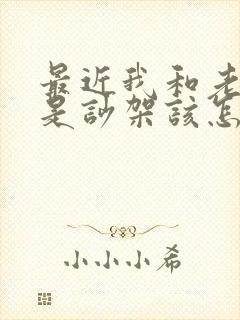 最近我和老
是訬架該怎
小小小希